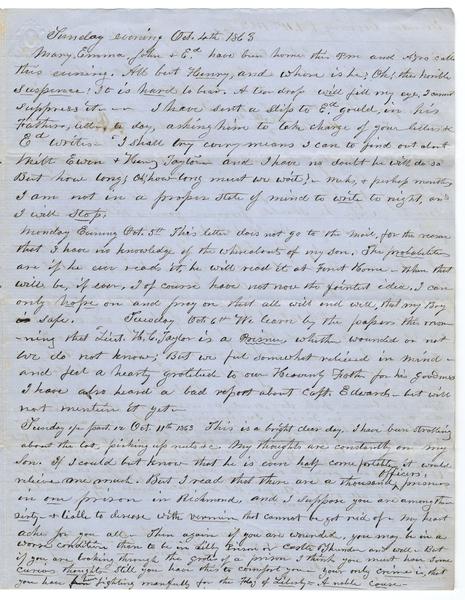 Sunday evening Oct. 4th 1863
Mary, Emma, John & Ed have been home this P.m. and
this evening. All but Henry, and where is he? Oh! this horrible
suspense! It is hard to bear. A tear drop will fill my eye, I cannot
suppress it. I have sent a slip to Ed. Gould, in his
Father's letter, to day, asking him to take charge of your letters &
Ed writes "I shall try every means I can to find out about
Milt Ewen & Henry Taylor and I have no doubt he will do so
But how long, Oh, how long must we wait? weeks, & perhaps months,
I am not in a proper state of mind to write to night, and
I will stop.
Monday Evening Oct. 5th This letter does not go to the mail, for the reason
that I have no knowledge of the whereabouts of my son. The probabilities
are if he ever reads it, he will read it at Home. When that
will be, if ever, I of course have not now the faintest idea, I can
only hope on and pray on that all will end well, that my Boy
is safe. Tuesday Oct 6th We learn by the papers this mor-
ning that Lieut. H. C. Taylor is a Prisoner, whether wounded or not
we do not know; But we feel somewhat relieved in mind
and feel a hearty gratitude to our Heavenly Father for his goodness
I have also heard a bad report about Capt. Edwards but will
not mention it yet.
Sunday Oct 11th 1863 This is a bright clear day. I have been strolling
about the lot, picking up nuts &c. My thoughts are constantly on my
son. If I could but know that he is even half comfortable, it would
relieve me much. But I read that there are a thousand officers prisoners
in one prison in Richmond and I suppose you are among them
& liable to disease with vermin that cannot be got rid of. My heart
aches for you all. Then again if you are wounded, you may be in a
worse condition than to be in Libby Prison or Castle Thunder and well. But
if you are looking through the grates of a prison I think you must have some
curious thoughts. Still you have this to comfort you your only crime is, that
you have been fighting manfully for the Flag of Liberty. A noble cause